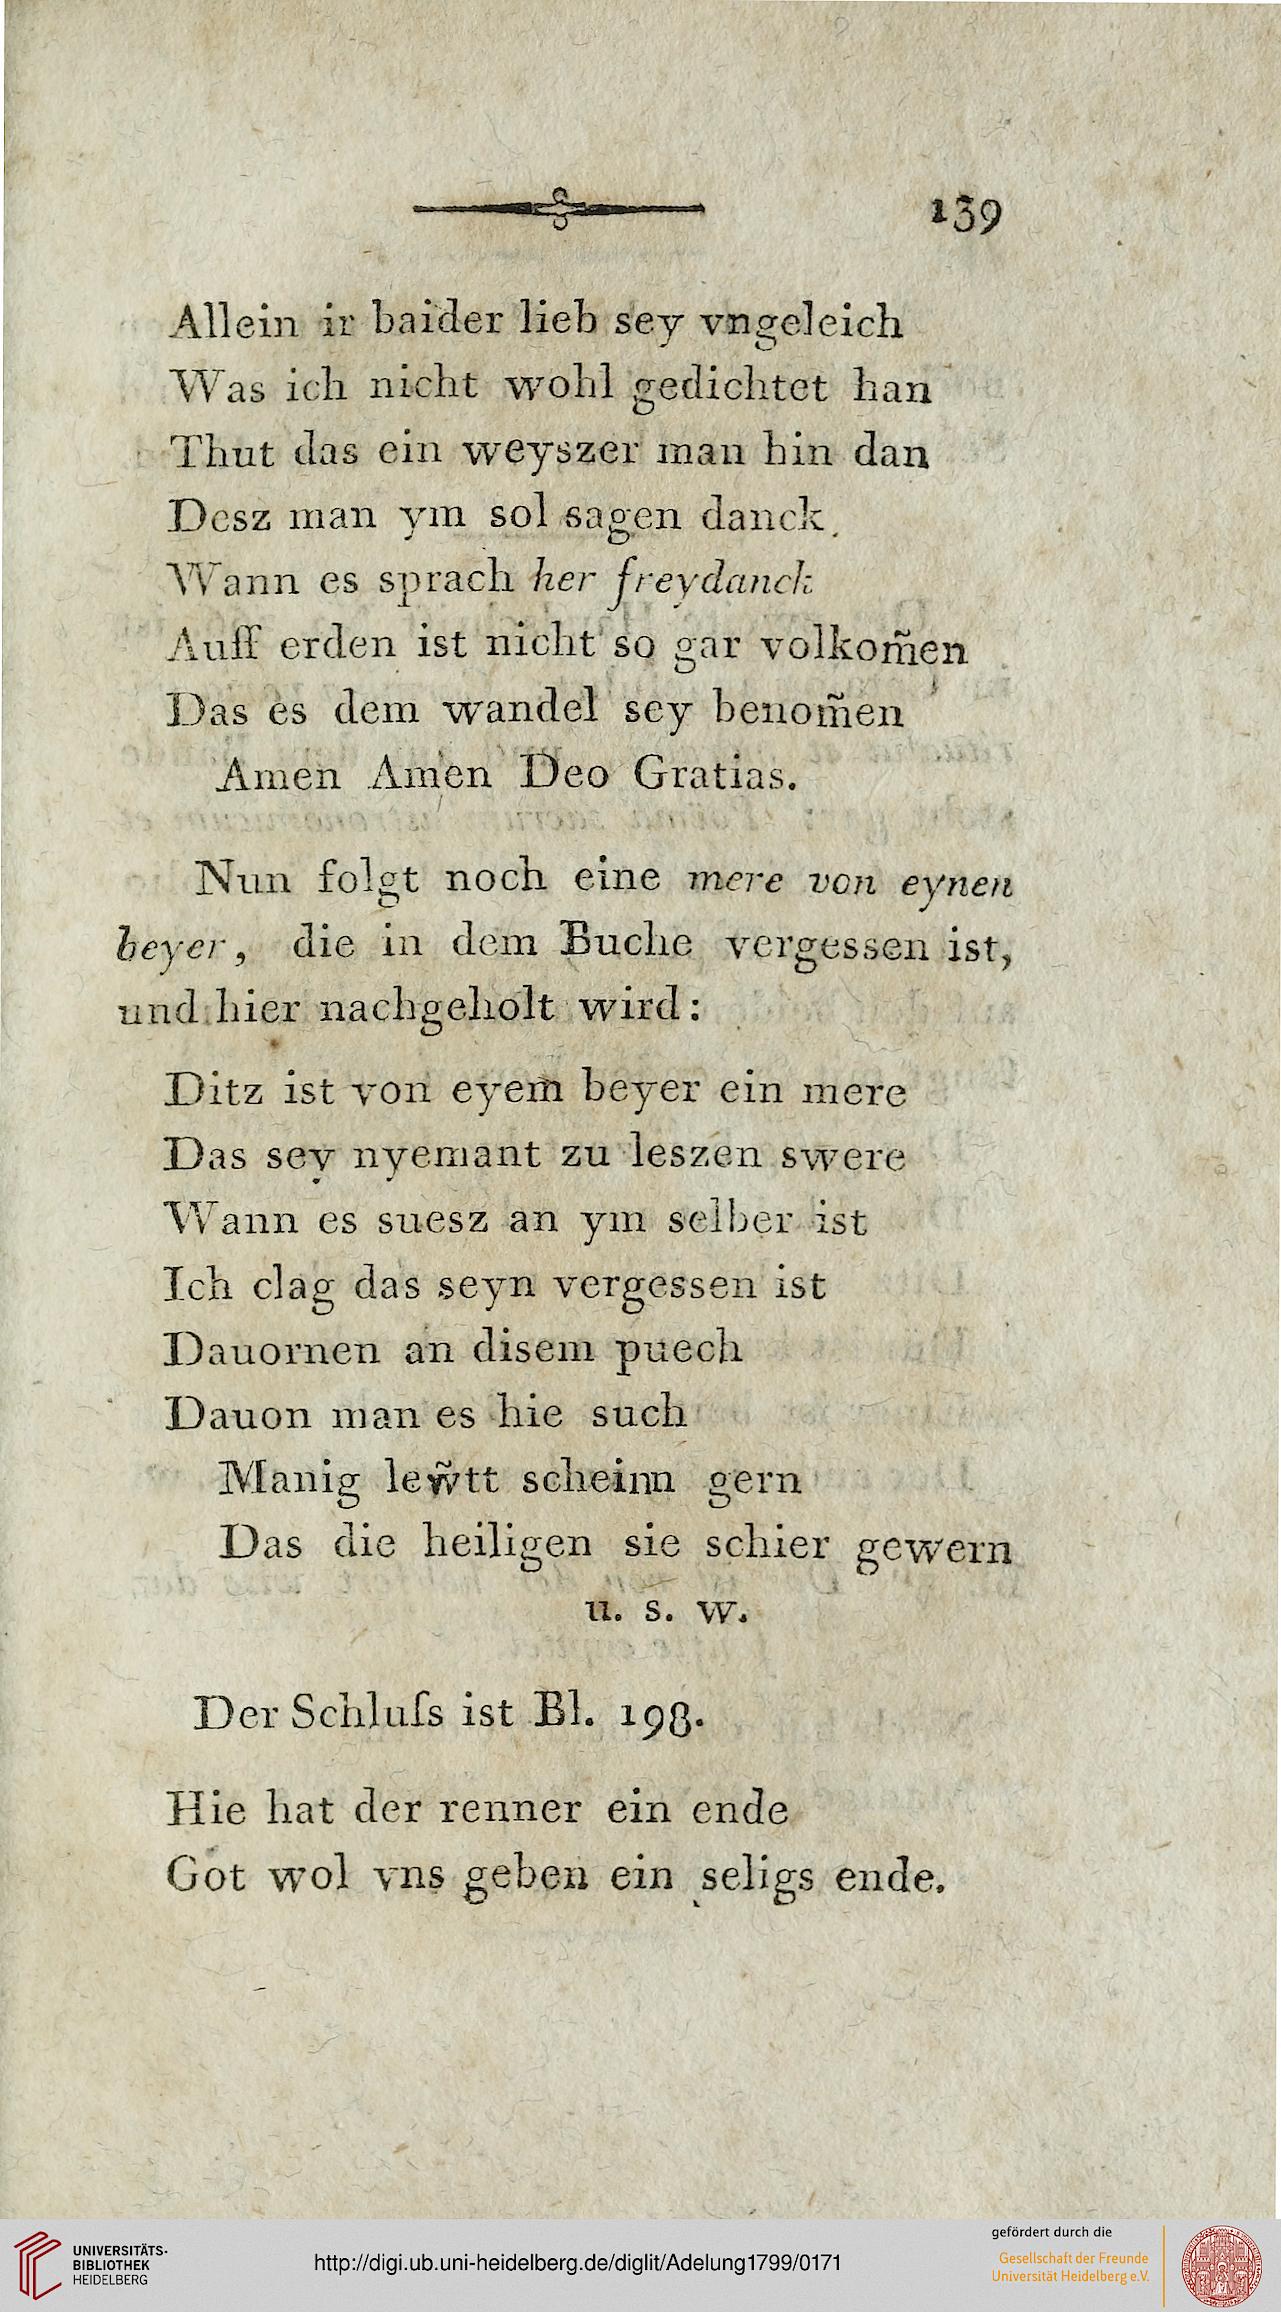 139
Allein ir baider lieb sey vngeleich
Was ich nicht wohl gedichtet han
Thut das ein weyszer man hin dan
Desz man ym sol sagen danck.
Wann es sprach her freydanck
Auff erden ist nicht so gar volkom̃en
Das es dem wandel sey benom̃en
Amen Amen Deo Gratias.
Nun folgt noch eine mere von eynen
beyer, die in dem Buche vergessen ist,
und hier nachgeholt wird:
Ditz ist von eyem̃ beyer ein mere
Das sey nyemant zu leszen swere
Wann es suesz an ym selber ist
Ich clag das seyn vergessen ist
Dauornen an disem puech
Dauon man es hie such
Manig lew̃tt scheinn gern
Das die heiligen sie schier gewern
u. s. w.
Der Schluſs ist Bl. 198.
Hie hat der renner ein ende
Got wol vns geben ein seligs ende.
UNIVERSITÄTS-
BIBLIOTHEK
HEIDELBERG
http://digi.ub.uni-heidelberg.de/diglit/Adelung1799/0171
gefördert durch die
Gesellschaft der Freunde
Universität Heidelberg e.V.